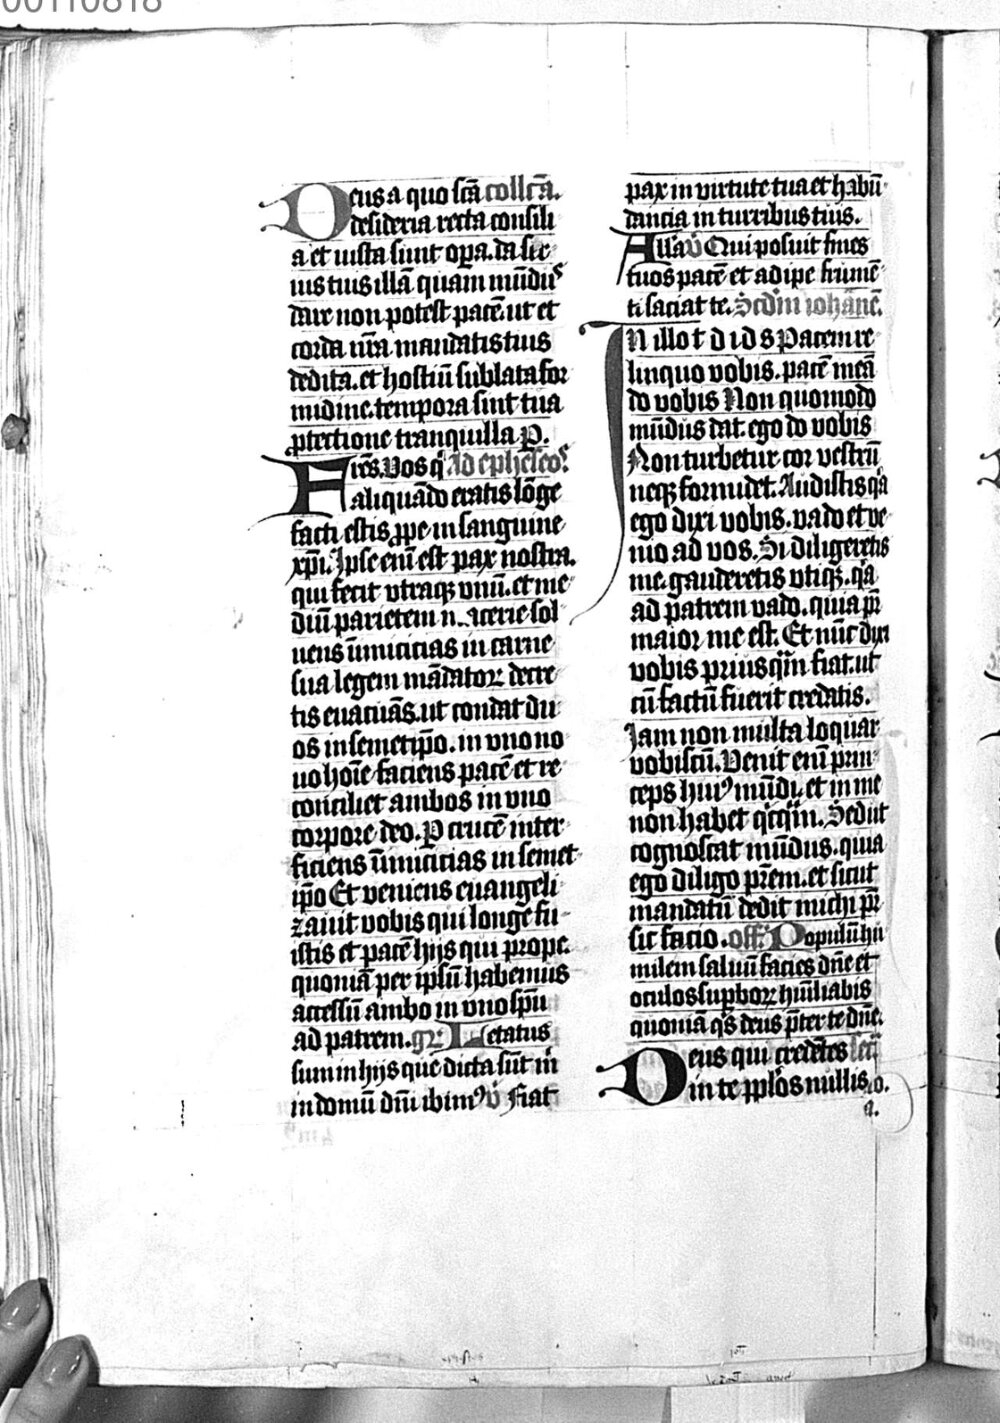 00110818
Deus a quo scā collcā.
desideria recta consili
a et iusta sunt opa. da ser
uis tuis illā quam mūdus
dare non potest pacē. ut et
corda nr̄a mandatis tuis
dedita. et hostiū sublata for
midine. tempora sint tua
ꝓtectione tranquilla. P.
Fr̄es. Vos q̄ Ad ephesios.
aliquādo eratis lōge
facti estis ꝓpe in sanguine
xp̄i. Ipse eni est pax nostra.
qui fecit vtraqꝫ vnū. et me
diū parietem macerie sol
uens inimicicias in carne
sua legem mādatoꝝ decre
tis euacuās. ut condat du
os in semetip̄o. in vno no
uo hoīe faciens pacē et re
conciliet ambos in vno
corpore deo. P crucē inter
ficiens inimicicias in semet
ip̄o Et veniens euangeli
zauit vobis qui longe fu
istis et pacē hijs qui prope.
quoniā per ipsū habemus
accessū ambo in vno sp̄u
ad patrem. gr̄. Letatus
sum in hijs que dicta sūt m̄
in domū dn̄i ibimꝰ v̄ Fiat
pax in virtute tua et habū
dancia in turribus tuis.
Alla v̄ Qui posuit fines
tuos pacē et adipe frumē
ti saciat te. Scdm iohānē.
In illo t d ih̄s d s Pacem re
linquo vobis. pacē meā
do vobis Non quomodo
mūdus dat. ego do vobis
Non turbetur cor vestrū
neqꝫ formidet. Audistis q̄a
ego dixi vobis. vado et ve
nio ad vos. Si diligeretis
me. gauderetis vtiqꝫ. q̄a
ad patrem vado. quia pr̄
maior me est. Et nūc dixi
vobis priusq̄m fiat. ut
cū factū fuerit credatis.
Iam non multa loquar
vobiscū. Venit enī prin
ceps huiꝰ mūdi. et in me
non habet q̄cq̄m. Sed ut
cognoscat mūdus. quia
ego diligo prēm. et sicut
mandatū dedit michi pr̄
sic facio. off. Populū hu
milem saluū facies dn̄e et
oculos supboꝝ hūiliabis
quoniā q̄s deus p̄ter te dn̄e.
Deus qui credētes secr̄
in te pplōs nullis